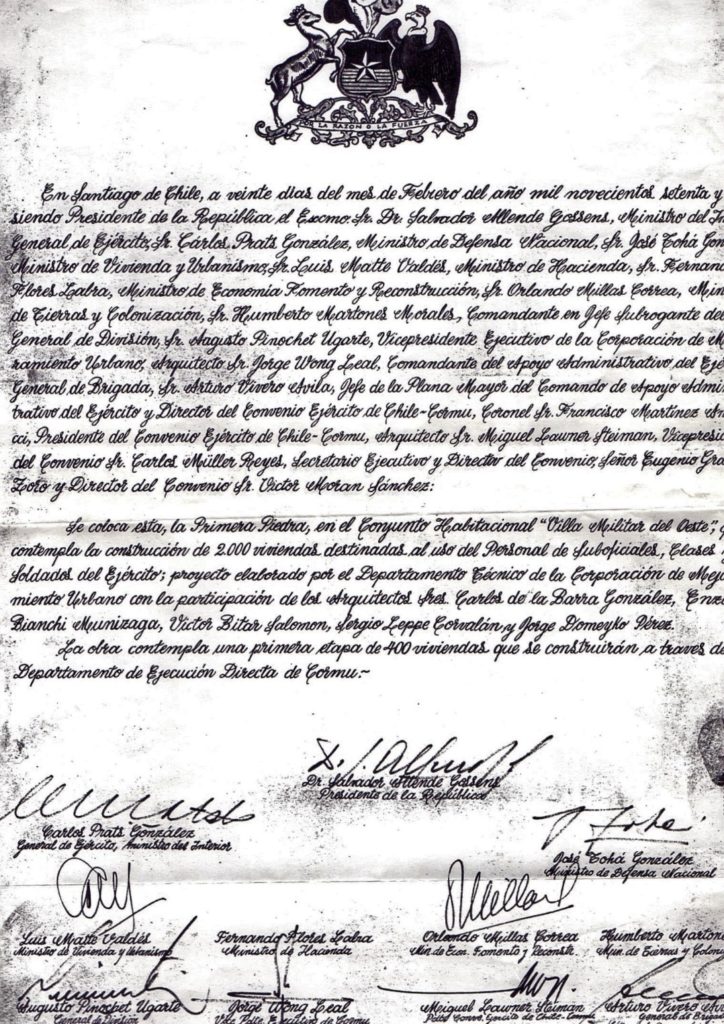 POR LA RAZON O LA FUERZA
En Santiago de Chile, a veinte días del mes de Febrero del año mil novecientos setenta y
siendo Presidente de la República el Excmo. Sr. Dr. Salvador Allende Gossens, Ministro del In
General de Ejército, Sr. Carlos Prats González, Ministro de Defensa Nacional, Sr. José Tohá Gon
Ministro de Vivienda y Urbanismo, Sr. Luis Matte Valdés, Ministro de Hacienda, Sr. Fernan
Flores Labra, Ministro de Economía Fomento y Reconstrucción, Sr. Orlando Millas Correa, Min
de Tierras y Colonización, Sr. Humberto Martones Morales, Comandante en Jefe Subrogante del
General de División, Sr. Augusto Pinochet Ugarte, Vicepresidente Ejecutivo de la Corporación de M
ramiento Urbano, Arquitecto Sr. Jorge Wong Leal, Comandante del Apoyo Administrativo del Ejé
General de Brigada, Sr. Arturo Vivero Avila, Jefe de la Plana Mayor del Comando de Apoyo Admi
trativo del Ejército y Director del Convenio Ejército de Chile-Cormu, Coronel Sr. Francisco Martínez An
ci, Presidente del Convenio Ejército de Chile-Cormu, Arquitecto Sr. Miguel Lawner Steiman, Vicepresi
del Convenio Sr. Carlos Müller Reyes, Secretario Ejecutivo y Director del Convenio, Señor Eugenio Gra
Zoro y Director del Convenio Sr. Victor Moran Sánchez:
Se coloca esta, la Primera Piedra, en el Conjunto Habitacional "Villa Militar del Oeste",
contempla la construcción de 2.000 viviendas destinadas al uso del Personal de Suboficiales, Clases
Soldados del Ejército; proyecto elaborado por el Departamento Técnico de la Corporación de Mejo
miento Urbano con la participación de los Arquitectos Sres. Carlos de la Barra González, Enzo
Bianchi Munizaga, Victor Bitar Salomon, Sergio Leppe Corvalán y Jorge Domeyko Pérez.
La obra contempla una primera etapa de 400 viviendas que se construirán a través de
Departamento de Ejecución Directa de Cormu.-
Dr. Salvador Allende Gossens
Presidente de la República
Carlos Prats González
General de Ejército, Ministro del Interior
José Tohá González
Ministro de Defensa Nacional
Luis Matte Valdés
Ministro de Vivienda y Urbanismo
Fernando Flores Labra
Ministro de Hacienda
Orlando Millas Correa
Min de Eco. Fomento y Reconstr.
Humberto Marton
Min. de Tierras y Colon
Augusto Pinochet Ugarte
General de División
Jorge Wong Leal
Vice Pdte. Ejecutivo de Cormu
Miguel Lawner Steiman
Arturo Vivero Av
General de Brig